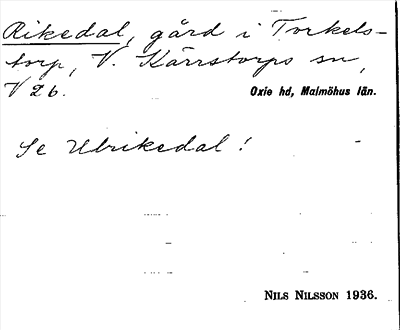 Rikedal, gård i Torkels-
torp, V. Kärrstorps sn,
V 26. Oxie hd, Malmöhus län.
Se Ulrikedal!
NILS NILSSON 1936.